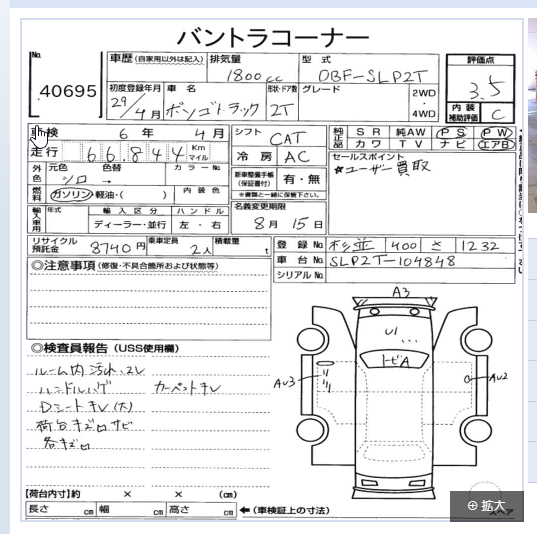 バントラコーナー
No.
40695
車歴(自家用以外は記入)
排気量
1800cc
型式
DBF-SLP2T
評価点
3.5
初度登録年月
29/4月
車名
ボンゴトラック
形状・ドア数
2T
グレード
2WD
・
4WD
内装
補助評価
C
車検 6年 4月
シフト CAT
純正品
SR 純AW PS PW
カワ TV ナビ エアB
走行 66,844 Km マイル
冷房 AC
セールスポイント
☆ユーザー買取
外色
元色 シロ
色替 →
カラーNo
新車整備手帳
(保証書付)
有・無
※書類と一緒に保管下さい。
燃料
ガソリン・軽油・( )
内装色
輸入車用
年式
輸入区分
ディーラー・並行
ハンドル
左・右
名義変更期限
8月 15日
リサイクル
預託金
8740円
乗車定員
2人
積載量
t
登録No.
杉並 400 さ 1232
車台No.
SLP2T-104848
シリアルNo.
◎注意事項(修復・不具合箇所および状態等)
◎検査員報告(USS使用欄)
ルーム内汚れ、スレ
ハンドルハゲ カーペットキレ
Dシートキレ(大)
荷台キズ凹サビ
各キズ凹
A3
U1
トビA
AU3
AU2
【荷台内寸】約 × × (cm)
長さ cm 幅 cm 高さ cm ←(車検証上の寸法)
スペア
拡大